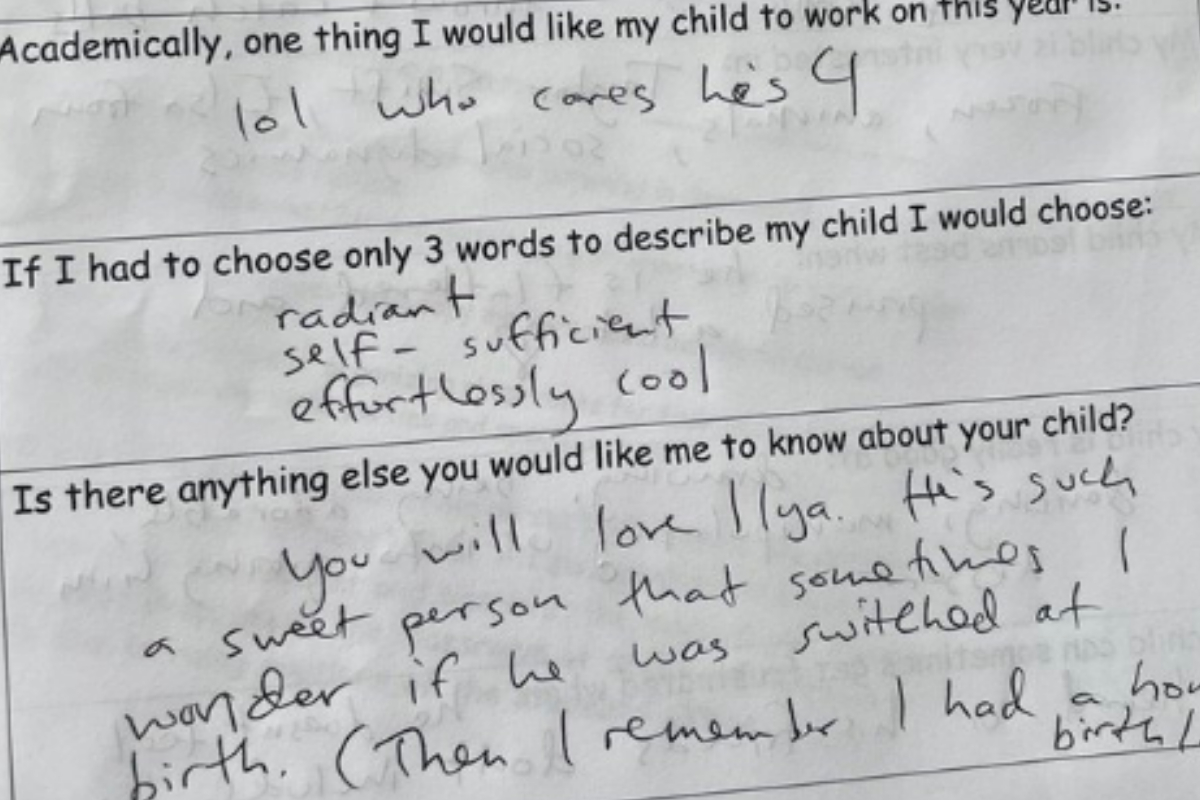 Academically, one thing I would like my child to work on this year is:
lol who cares he's 4
If I had to choose only 3 words to describe my child I would choose:
radiant
self - sufficient
effortlessly cool
Is there anything else you would like me to know about your child?
you will love Ilya. He's such
a sweet person that sometimes I
wonder if he was switched at
birth. (Then I remember I had a
birth!